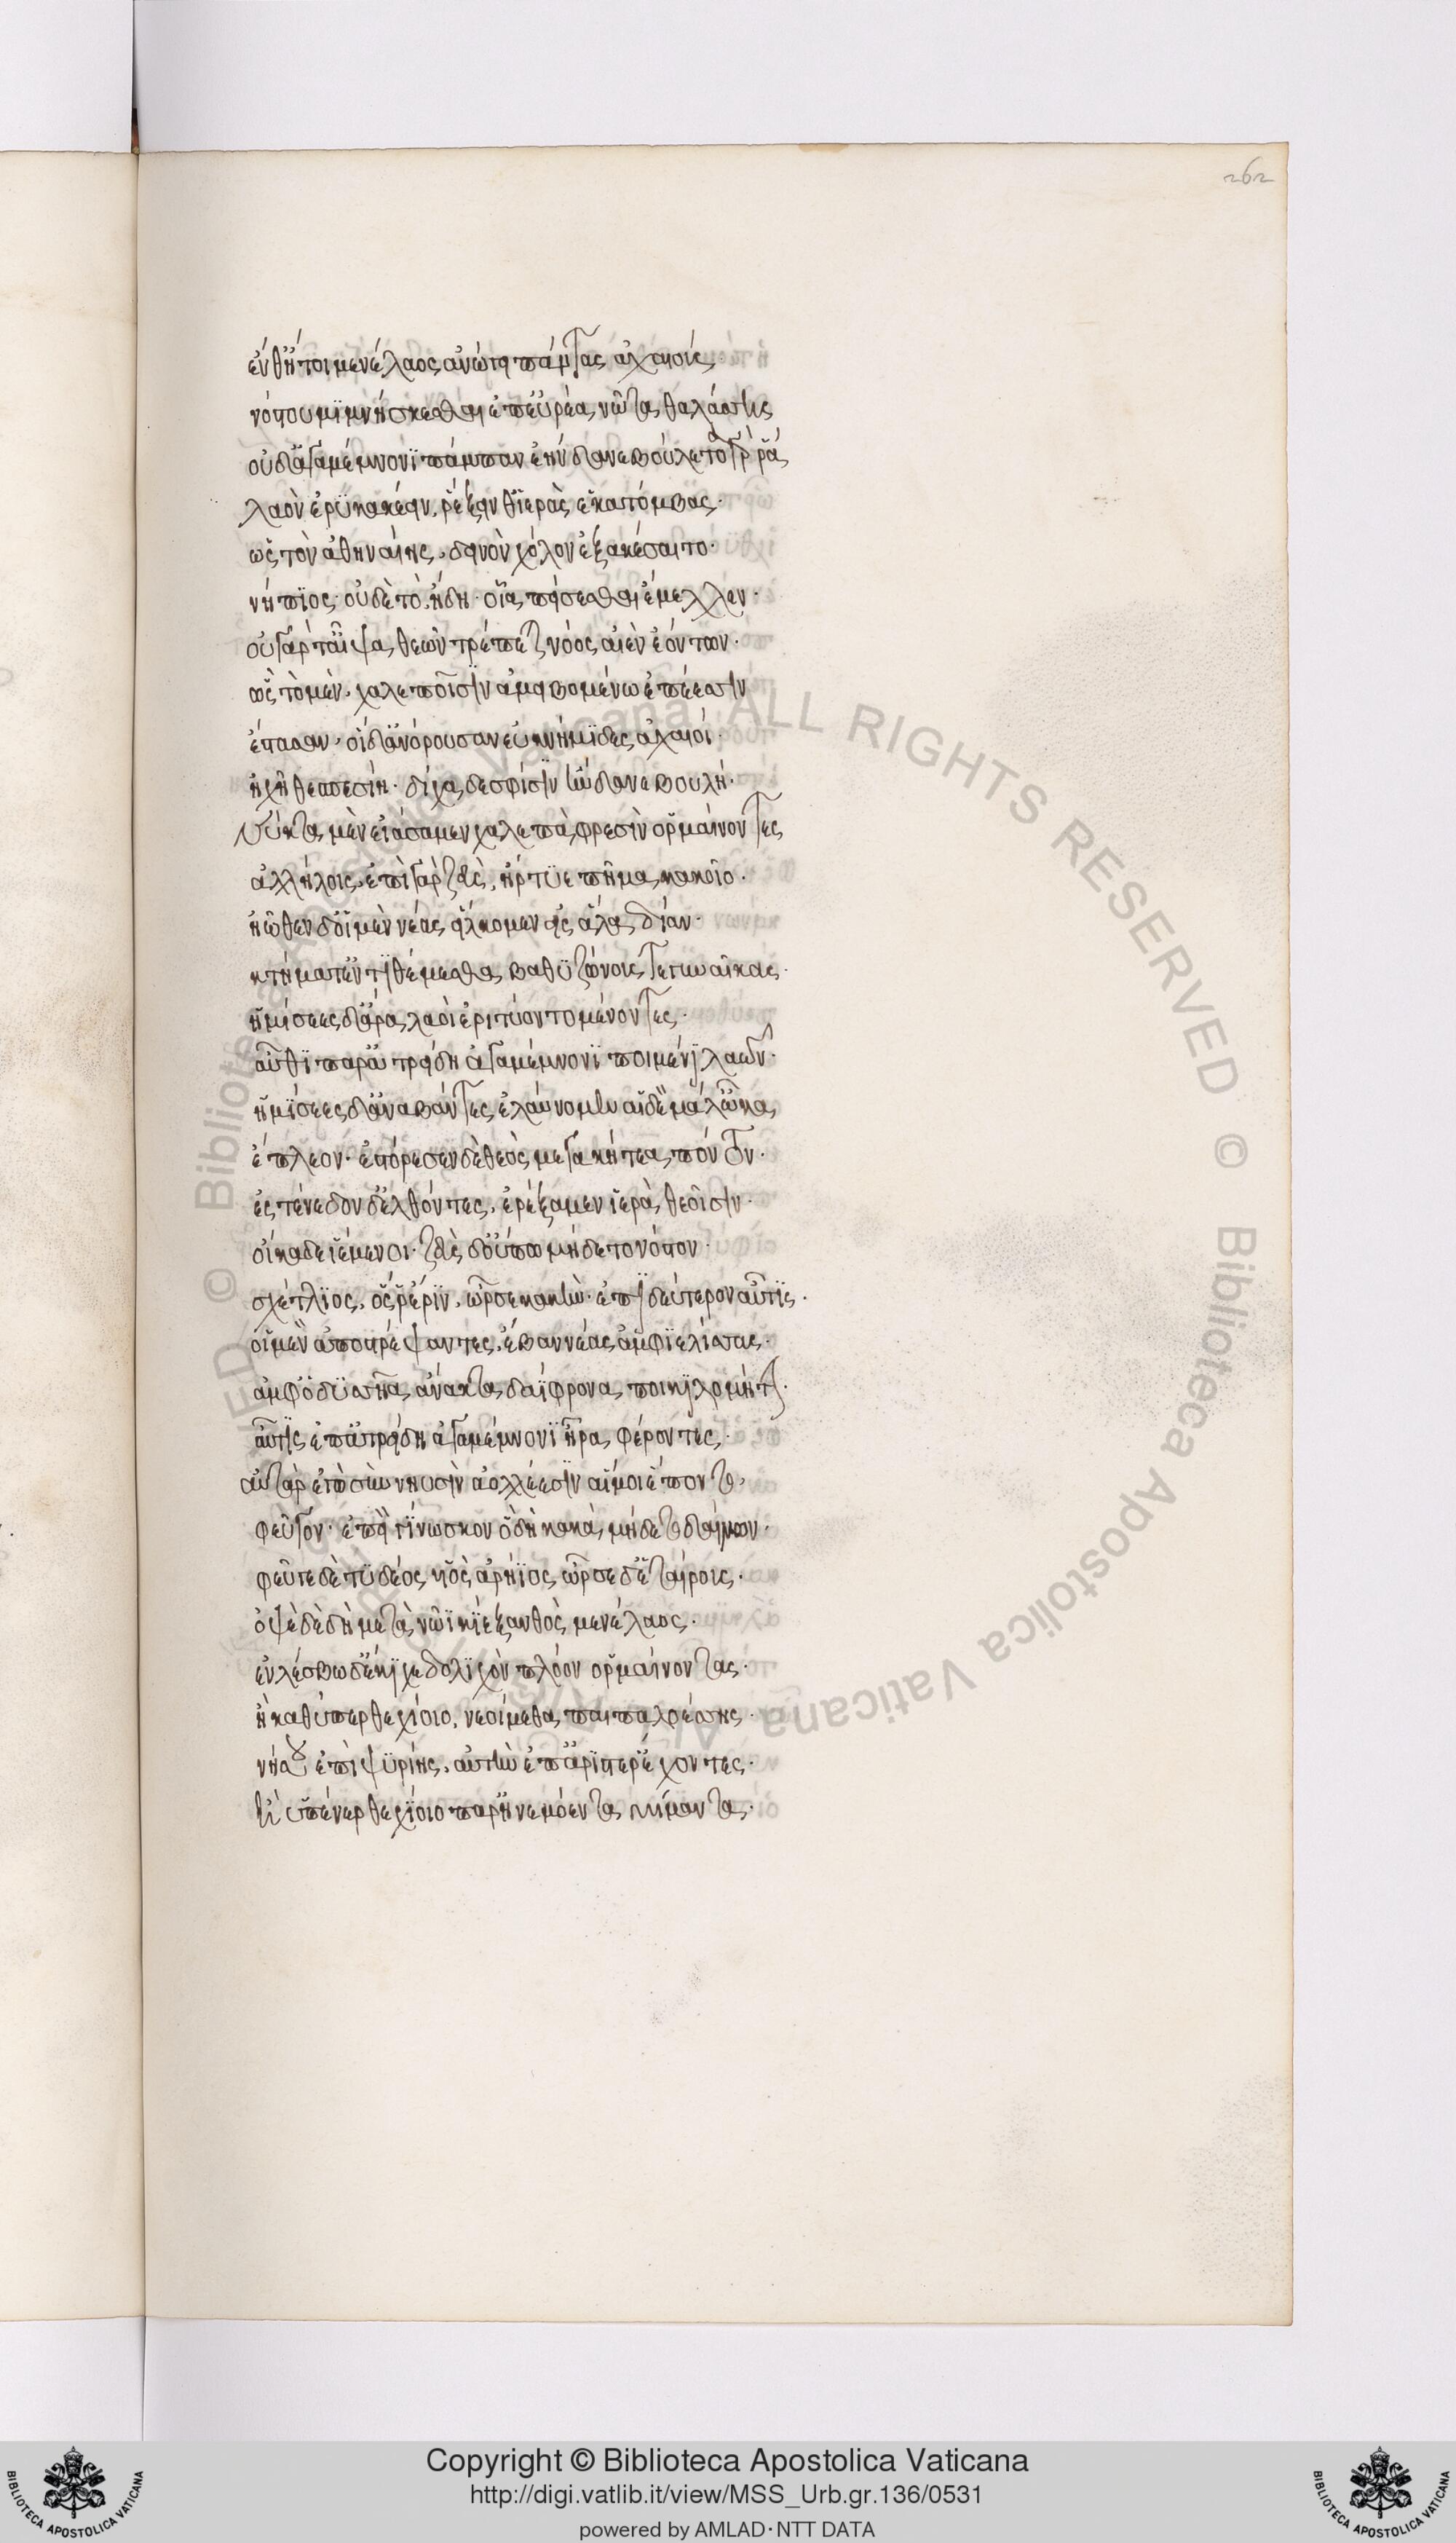 262
ἔνθ' ἤτοι μενέλαος ἀνώγει πάντας ἀχαιοὺς
νόστου μιμνήσκεσθαι ἐπ' εὐρέα νῶτα θαλάσσης
οὐδ' ἀγαμέμνονι πάμπαν ἑήνδανε βούλετο γάρ ῥα
λαὸν ἐρυκακέειν, ῥέξειν θ' ἱερὰς ἑκατόμβας·
ὡς τὸν ἀθηναίης, δεινὸν χόλον ἐξακέσαιτο·
νήπιος· οὐδὲ τὸ ἤδη· ὃ οὐ πείσεσθαι ἔμελλεν·
οὐ γάρ τ' αἶψα θεῶν τρέπεται νόος αἰὲν ἐόντων·
ὣς τὼ μὲν, χαλεποῖσιν ἀμειβομένω ἐπέεσσιν
ἕστασαν, οἱ δ' ἀνόρουσαν ἐϋκνήμιδες ἀχαιοί·
ἠχῇ θεσπεσίῃ· δίχα δέ σφισιν ἥνδανε βουλή·
νύκτα μὲν εἰάσαμεν χαλεπὰ φρεσὶν ὁρμαίνοντες
ἀλλήλοις, ἐπὶ γὰρ ζεὺς, ἤρτυε πῆμα κακοῖο·
ἠῶθεν δ' οἱ μὲν νέας εἵλκομεν εἰς ἅλα δῖαν·
κτήματά τ' ἐντιθέμεσθα βαθυζώνους τε γυναῖκας·
ἡμίσεες δ' ἄρα λαοὶ ἐρητύοντο μένοντες·
αὖθι παρ' ἀτρείδη ἀγαμέμνονι ποιμένι λαῶν·
ἡμίσεες δ' ἀναβάντες ἐλαύνομεν αἱ δὲ μάλ' ὦκα
ἔπλεον· ἐστόρεσεν δὲ θεὸς μεγακήτεα πόντον·
ἐς τένεδον δ' ἐλθόντες, ἐρέξαμεν ἱερὰ θεοῖσιν·
οἴκαδε ἱέμενοι· ζεὺς δ' οὔπω μήδετο νόστον·
σχέτλιος, ὅς ῥ' ἔριν, ὦρσε κακὴν· ἐπὶ δεύτερον αὖτις·
οἱ μὲν ἀποστρέψαντες, ἔβαν νέας ἀμφιελίσσας·
ἀμφ' ὀδυσῆα ἄνακτα δαΐφρονα ποικιλομήτην·
αὖτις ἐπ' ἀτρείδη ἀγαμέμνονι ἦρα φέροντες·
αὐτὰρ ἐγὼ σὺν νηυσὶν ἀολλέεσιν αἵ μοι ἕποντο,
φεῦγον· ἐπεὶ γίνωσκον ὃ δὴ κακὰ μήδετο δαίμων·
φεῦγε δὲ τυδέος υἱὸς ἀρήϊος, ὦρσε δ' ἑταίρους·
ὀψὲ δὲ δὴ μετὰ νῶϊ κίε ξανθὸς μενέλαος·
ἐν λέσβω δ' ἔκιχε δολιχὸν πλόον ὁρμαίνοντας·
ἢ καθύπερθε χίοιο, νεοίμεθα παιπαλοέσσης·
νήσου ἐπὶ ψυρίης, αὐτὴν ἐπ' ἀρίστερ' ἔχοντες·
ἢ ὑπένερθε χίοιο παρ' ἠνεμόεντα μίμαντα·
© Biblioteca Apostolica Vaticana ALL RIGHTS RESERVED
Copyright © Biblioteca Apostolica Vaticana
http://digi.vatlib.it/view/MSS_Urb.gr.136/0531
powered by AMLAD·NTT DATA
BIBLIOTECA APOSTOLICA VATICANA
BIBLIOTECA APOSTOLICA VATICANA